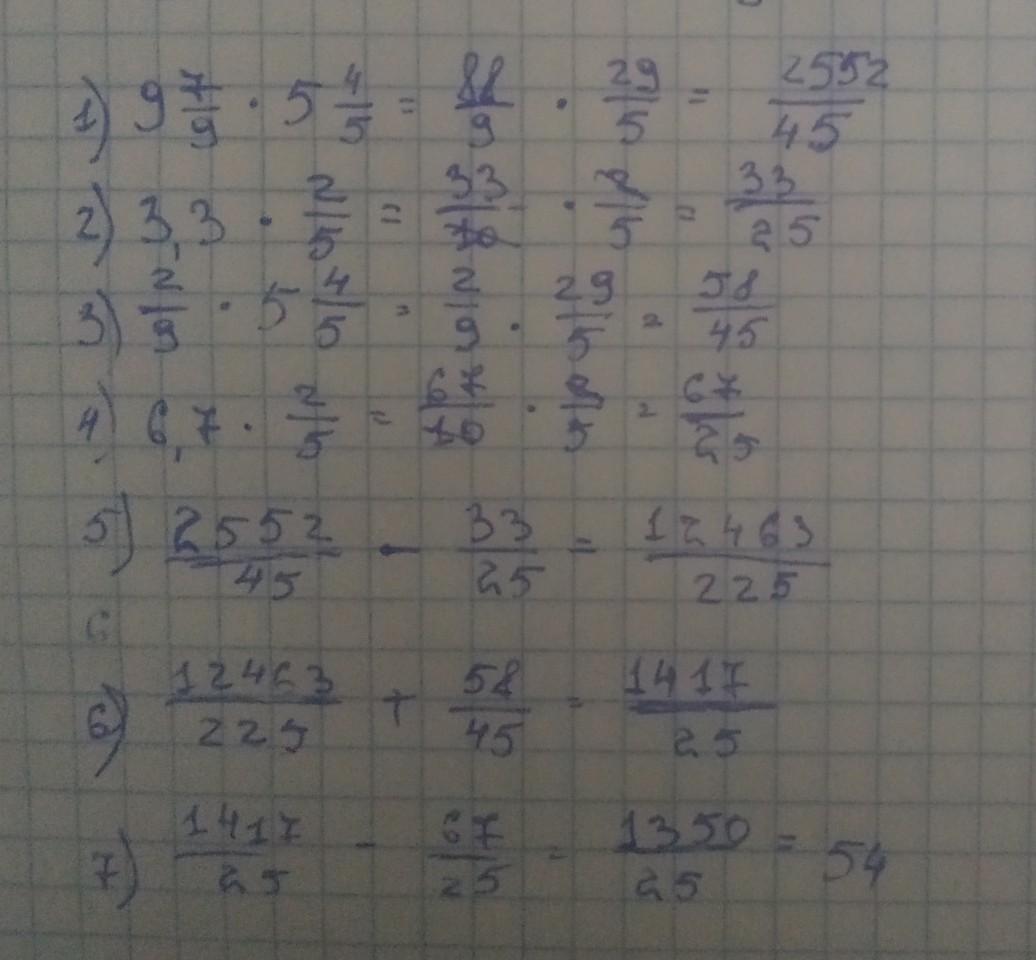 1) 9 7/9 · 5 4/5 = 88/9 · 29/5 = 2552/45
2) 3,3 · 2/5 = 33/10 · 2/5 = 33/25
3) 2/9 · 5 4/5 = 2/9 · 29/5 = 58/45
4) 6,7 · 2/5 = 67/10 · 2/5 = 67/25
5) 2552/45 - 33/25 = 12463/225
6
6) 12463/225 + 58/45 = 1417/25
7) 1417/25 - 67/25 = 1350/25 = 54